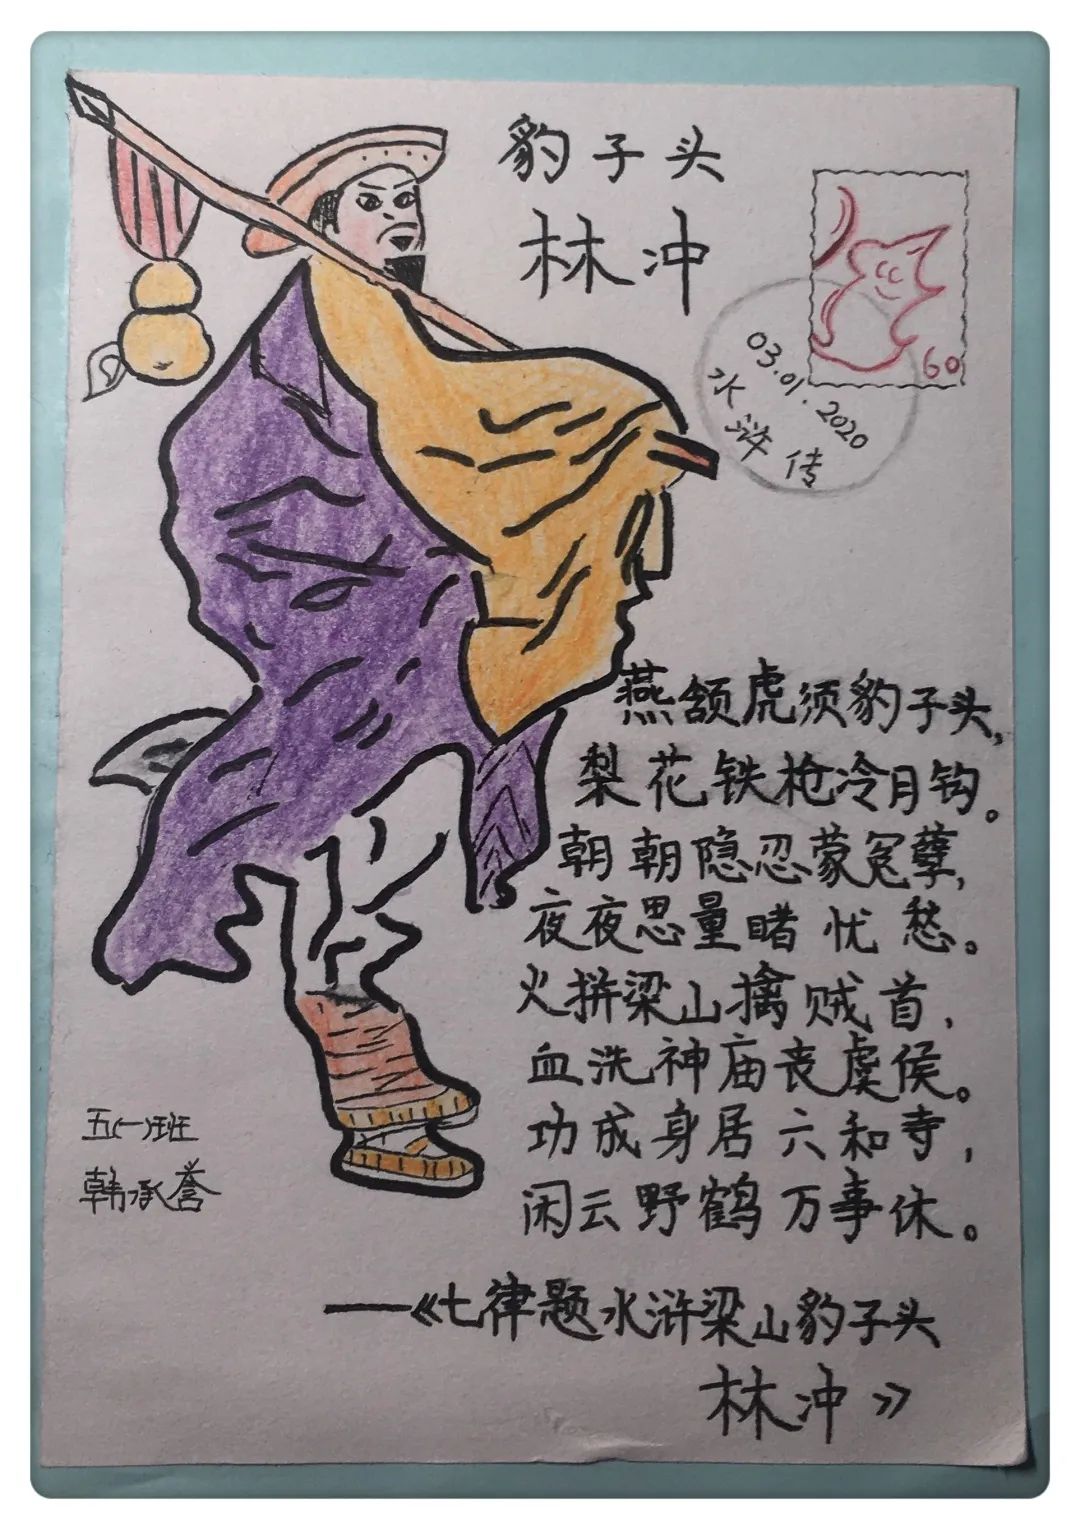 豹子头
林冲
60
03.01.2020
水浒传
燕颔虎须豹子头，
梨花铁枪冷月钩。
朝朝隐忍蒙冤孽，
夜夜思量睹忧愁。
火拼梁山擒贼首，
血洗神庙丧虞侯。
功成身居六和寺，
闲云野鹤万事休。
五(一)班
韩承誉
——《七律题水浒梁山豹子头
林冲》